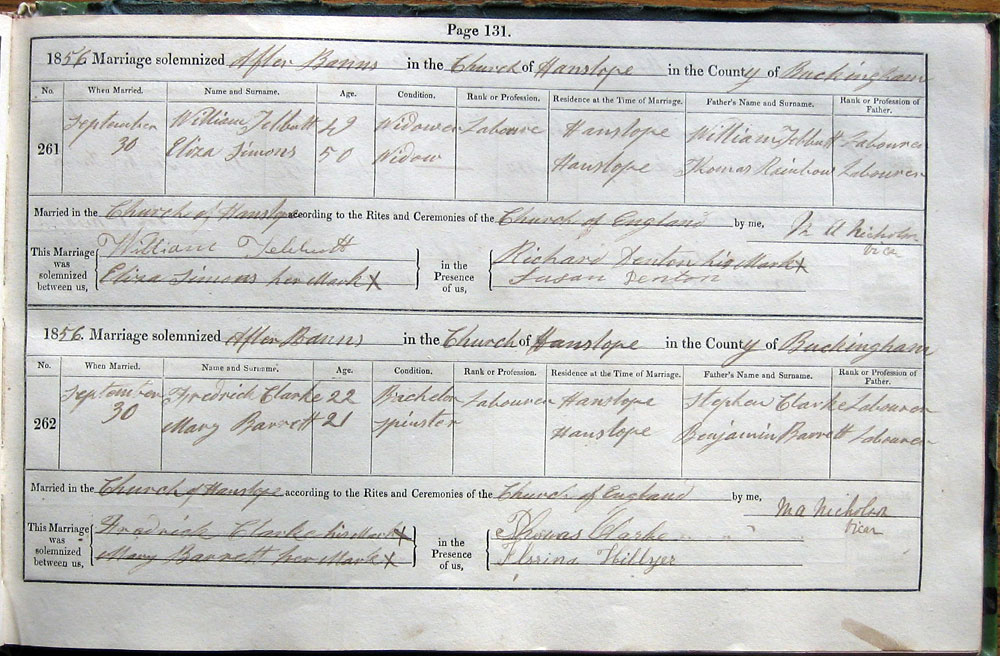 Page 131.
1856 Marriage solemnized After Banns in the Church of Hanslope in the County of Buckingham
No. When Married. Name and Surname. Age. Condition. Rank or Profession. Residence at the Time of Marriage. Father's Name and Surname. Rank or Profession of Father.
261 September 30 William Tebbutt 49 Widower Laboure Hanslope William Tebbutt Labourer
Eliza Simons 50 Widow Hanslope Thomas Rainbow Labourer
Married in the Church of Hanslope according to the Rites and Ceremonies of the Church of England by me, M A Nicholson
Vicar
This Marriage was solemnized between us, William Tebbutt in the Presence of us, Richard Denton his Mark X
Eliza Simons her Mark X Susan Denton
1856. Marriage solemnized After Banns in the Church of Hanslope in the County of Buckingham
No. When Married. Name and Surname. Age. Condition. Rank or Profession. Residence at the Time of Marriage. Father's Name and Surname. Rank or Profession of Father.
262 September 30 Fredrick Clarke 22 Bachelor Labourer Hanslope Stephen Clarke Labourer
Mary Barrett 21 Spinster Hanslope Benjamin Barrett Labourer
Married in the Church of Hanslope according to the Rites and Ceremonies of the Church of England by me, M A Nicholson
Vicar
This Marriage was solemnized between us, Fredrick Clarke his Mark X in the Presence of us, Thomas Clarke
Mary Barrett her Mark X Hillyer